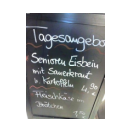 Tagesangebo
Senioren Eisbein
mit Sauerkraut
u. Kartoffeln 4,90
Fleischkäse im
Brötchen